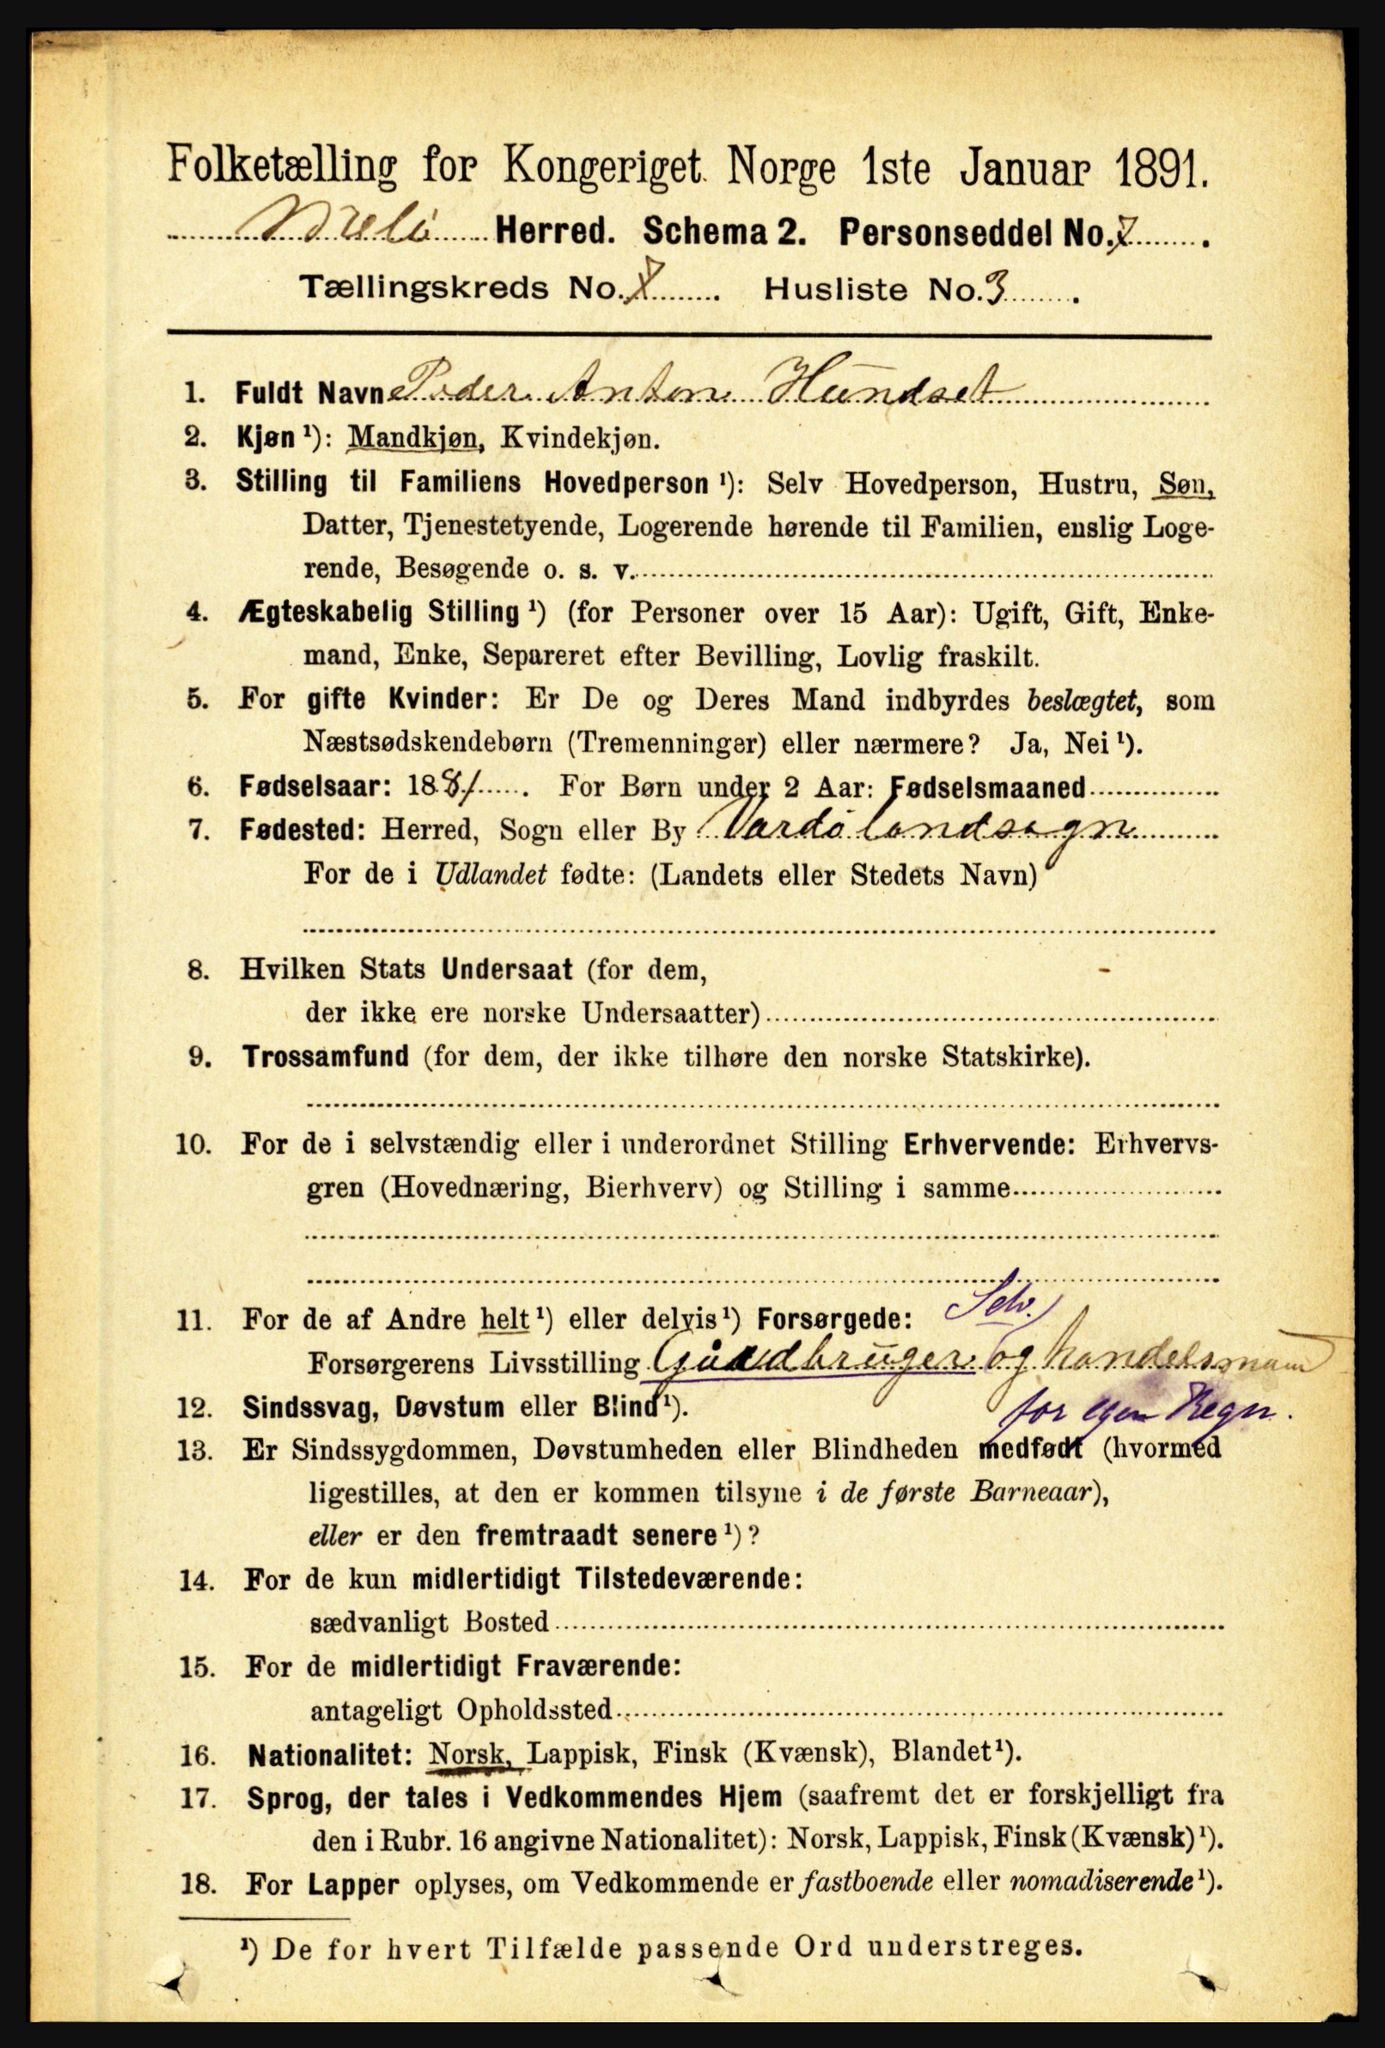 Folketælling for Kongeriget Norge 1ste Januar 1891.
Herred. Schema 2. Personseddel No. 7.
Tællingskreds No. Husliste No. 3.
1. Fuldt Navn Peder Anton Hundset
2. Kjøn ¹): Mandkjøn, Kvindekjøn.
3. Stilling til Familiens Hovedperson ¹): Selv Hovedperson, Hustru, Søn,
Datter, Tjenestetyende, Logerende hørende til Familien, enslig Loge-
rende, Besøgende o. s. v.
4. Ægteskabelig Stilling ¹) (for Personer over 15 Aar): Ugift, Gift, Enke-
mand, Enke, Separeret efter Bevilling, Lovlig fraskilt.
5. For gifte Kvinder: Er De og Deres Mand indbyrdes beslægtet, som
Næstsødskendebørn (Tremenninger) eller nærmere? Ja, Nei ¹).
6. Fødselsaar: 1881. For Børn under 2 Aar: Fødselsmaaned
7. Fødested: Herred, Sogn eller By Vardø landsogn
For de i Udlandet fødte: (Landets eller Stedets Navn)
8. Hvilken Stats Undersaat (for dem,
der ikke ere norske Undersaatter)
9. Trossamfund (for dem, der ikke tilhøre den norske Statskirke).
10. For de i selvstændig eller i underordnet Stilling Erhvervende: Erhvervs-
gren (Hovednæring, Bierhverv) og Stilling i samme
11. For de af Andre helt ¹) eller delvis ¹) Forsørgede: Selv.
Forsørgerens Livsstilling Gårdbruger og handelsmann
12. Sindssvag, Døvstum eller Blind ¹). for egen Regn.
13. Er Sindssygdommen, Døvstumheden eller Blindheden medfødt (hvormed
ligestilles, at den er kommen tilsyne i de første Barneaar),
eller er den fremtraadt senere ¹)?
14. For de kun midlertidigt Tilstedeværende:
sædvanligt Bosted
15. For de midlertidigt Fraværende:
antageligt Opholdssted
16. Nationalitet: Norsk, Lappisk, Finsk (Kvænsk), Blandet ¹).
17. Sprog, der tales i Vedkommendes Hjem (saafremt det er forskjelligt fra
den i Rubr. 16 angivne Nationalitet): Norsk, Lappisk, Finsk (Kvænsk) ¹).
18. For Lapper oplyses, om Vedkommende er fastboende eller nomadiserende ¹).
¹) De for hvert Tilfælde passende Ord understreges.